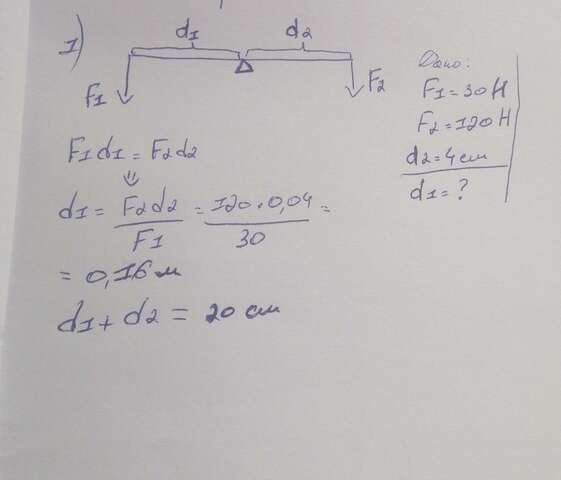 1)
d1 d2
F1 F2
Дано:
F1 = 30 Н
F2 = 120 Н
d2 = 4 см
d1 = ?
F1d1 = F2d2
⇓
d1 = F2d2 / F1 = 120 · 0,04 / 30 =
= 0,16 м
d1 + d2 = 20 см